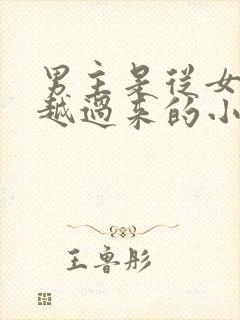 男主是从女
越过来的小
王鲁彤